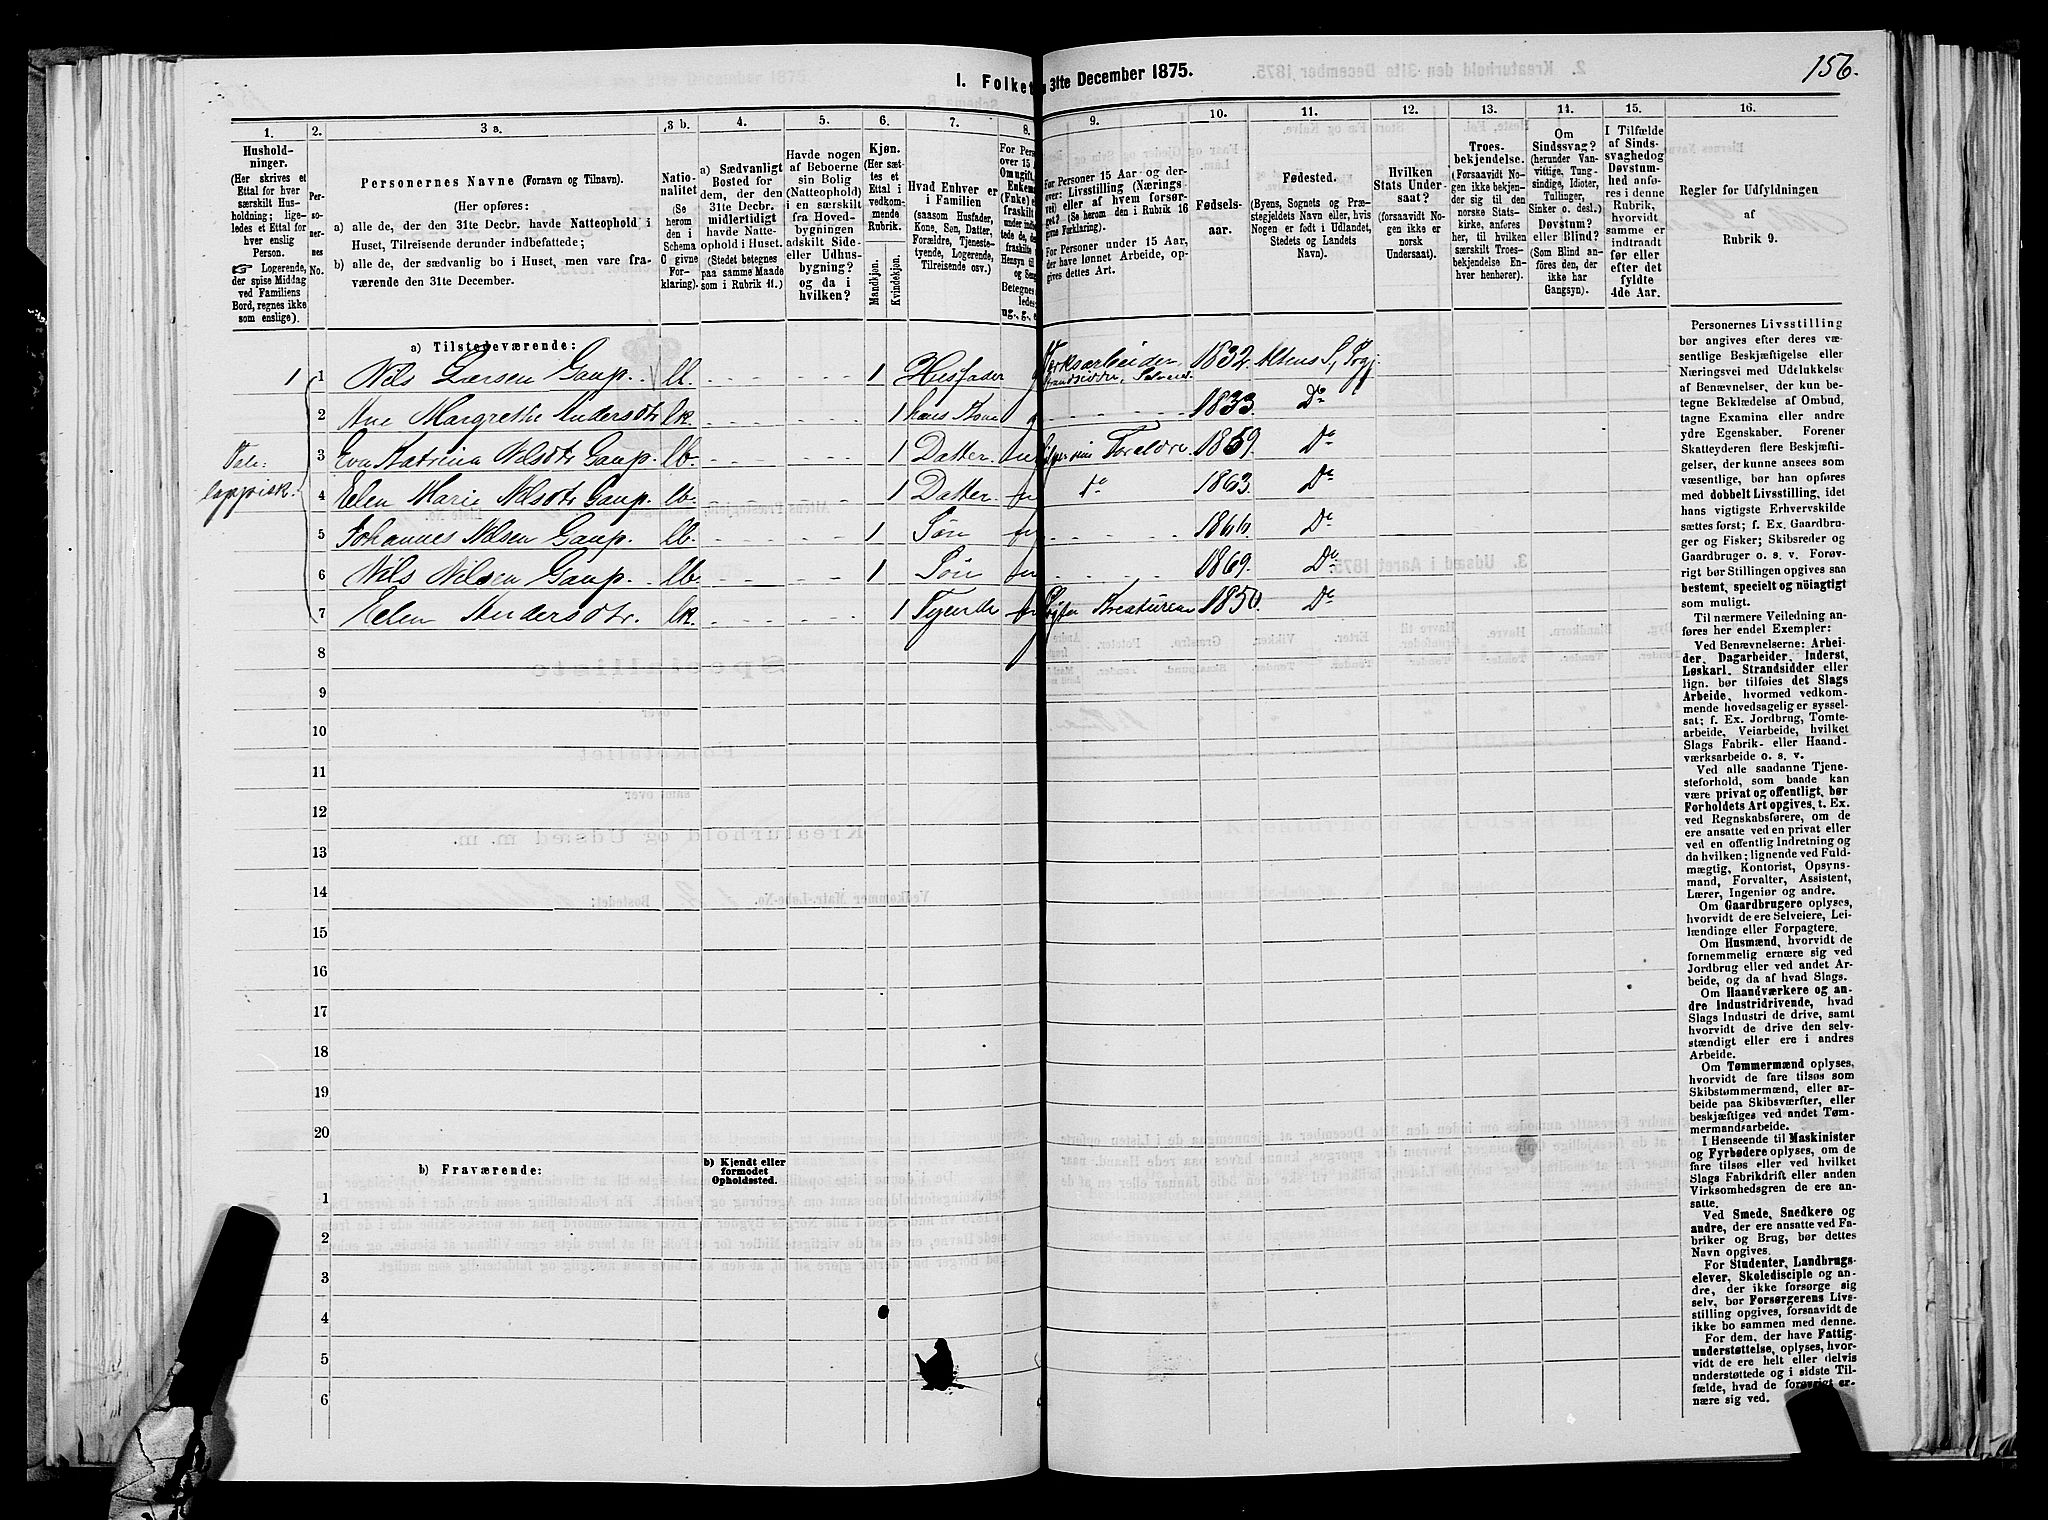 156.
I. Folket
31te December 1875.
1. 2. 3 a. 3 b. 4. 5. 6. 7. 8. 9. 10. 11. 12. 13. 14. 15. 16.
Hushold-
ninger.
(Her skrives et
Ettal for hver
særskilt Hus-
holdning; lige-
ledes et Ettal for
hver enslig
Person.
☞ Logerende,
der spise Middag
ved Familiens
Bord, regnes ikke
som enslige).
Per-
so-
ner-
nes
No.
Personernes Navne (Fornavn og Tilnavn).
(Her opføres:
a) alle de, der den 31te Decbr. havde Natteophold i
Huset, Tilreisende derunder indbefattede;
b) alle de, der sædvanlig bo i Huset, men vare fra-
værende den 31te December.
Natio-
nalitet
(Se
herom
den i
Schema
C givne
For-
klaring).
a) Sædvanligt
Bosted for
dem, der den
31te Decbr.
midlertidigt
havde Natte-
ophold i Huset.
(Stedet betegnes
paa samme Maade
som i Rubrik 11.)
Havde nogen
af Beboerne
sin Bolig
(Natteophold)
i en særskilt
fra Hoved-
bygningen
adskilt Side-
eller Udhus-
bygning?
og da i
hvilken?
Kjøn.
(Her sæt-
tes et
Ettal i
vedkom-
mende
Rubrik.
Mandkjøn.
Kvindekjøn.
Hvad Enhver er
i Familien
(saasom Husfader,
Kone, Søn, Datter,
Forældre, Tjeneste-
tyende, Logerende,
Tilreisende osv.)
For Personer 15 Aar og der-
over: Livsstilling (Nærings-
vei) eller af hvem forsør-
get? (Se herom den i Rubrik 16
givne Forklaring).
For Personer under 15 Aar,
der have lønnet Arbeide, op-
gives dettes Art.
Fødsels-
aar.
Fødested.
(Byens, Sognets og Præ-
stegjeldets Navn eller, hvis
Nogen er født i Udlandet,
Stedets og Landets
Navn).
Hvilken
Stats Under-
saat?
(forsaavidt No-
gen ikke er
norsk
Undersaat).
Troes-
bekjendelse.
(Forsaavidt No-
gen ikke bekjen-
der sig til den
norske Stats-
kirke, anføres
her, til hvilken
særskilt Troes-
bekjendelse En-
hver henhører).
Om
Sindssvag?
(herunder Van-
vittige, Tung-
sindige, Idioter,
Tullinger,
Sinker o. desl.)
Døvstum?
eller Blind?
(Som Blind an-
føres den, der
ikke har
Gangsyn).
I Tilfælde
af Sinds-
svaghed og
Døvstum-
hed anfø-
res i denne
Rubrik,
hvorvidt
samme er
indtraadt
før eller
efter det
fyldte
4de Aar.
Regler for Udfyldningen
af
Rubrik 9.
a) Tilstedeværende:
1 1 Nils Larsen Gaup. ll. 1 Husfader g 1832. Altens S, Prgj.
2 Ane Margrethe Andersdtr lk. 1 hans Kone g 1833. Do
3 Eva Katrina Nilsdtr Gaup. lb. 1 Datter. Forældre. 1859. Do
Tale:
lappisk.
4 Elen Marie Nilsdtr Gaup. lb. 1 Datter. do 1863. Do
5 Johannes Nilsen Gaup. lb. 1 Søn 1866. Do
6 Nils Nilsen Gaup. lb. 1 Søn 1869. Do
7 Elen Andersdtr. lk. 1 Tyende Kreaturene 1850. Do
8
9
10
11
12
13
14
15
16
17
18
19
20
b) Fraværende:
b) Kjendt eller
formodet
Opholdssted.
1
2
3
4
5
6
Personernes Livsstilling
bør angives efter deres væ-
sentlige Beskjæftigelse eller
Næringsvei med Udelukkelse
af Benævnelser, der kun be-
tegne Beklædelse af Ombud,
tagne Examina eller andre
ydre Egenskaber. Forener
Skatteyderen flere Beskjæfti-
gelser, der kunne ansees som
væsentlige, bør han opgives
med dobbelt Livsstilling, idet
hans vigtigste Erhvervskilde
sættes først; f. Ex. Gaardbru-
ger og Fisker; Skibsreder og
Gaardbruger o. s. v. Forøv-
rigt bør Stillingen opgives saa
bestemt, specielt og nöiagtigt
som muligt.
Til nærmere Veiledning an-
føres her endel Exempler:
Ved Benævnelserne: Arbei-
der, Dagarbeider, Inderst,
Løskarl, Strandsidder eller
lign. bør tilføies det Slags
Arbeide, hvormed vedkom-
mende hovedsagelig er syssel-
sat; f. Ex. Jordbrug, Tomte-
arbeide, Veiarbeide, hvilket
Slags Fabrik- eller Haand-
værksarbeide o. s. v.
Ved alle saadanne Tjene-
steforhold, som baade kan
være privat og offentligt, bør
Forholdets Art opgives, t. Ex.
ved Regnskabsførere, om de
ere ansatte ved en privat eller
ved en offentlig Indretning og
da hvilken; lignende ved Fuld-
mægtig, Kontorist, Opsyns-
mand, Forvalter, Assistent,
Lærer, Ingeniør og andre.
Om Gaardbrugere oplyses,
hvorvidt de ere Selveiere, Lei-
lændinge eller Forpagtere.
Om Husmænd, hvorvidt de
fornemmelig ernære sig ved
Jordbrug eller ved andet Ar-
beide, og da af hvad Slags.
Om Haandværkere og an-
dre Industridrivende, hvad
Slags Industri de drive, samt
hvorvidt de drive den selv-
stændigt eller ere i andres
Arbeide.
Om Tømmermænd oplyses,
hvorvidt de fare tilsøs som
Skibstømmermænd, eller ar-
beide paa Skibsværfter, eller
beskjæftiges ved andet Tøm-
mermandsarbeide.
I Henseende til Maskinister
og Fyrbødere oplyses, om de
fare tilsøs eller ved hvilket
Slags Fabrikdrift eller anden
Virksomhedsgren de ere an-
satte.
Ved Smede, Snedkere og
andre, der ere ansatte ved Fa-
briker og Brug, bør dettes
Navn opgives.
For Studenter, Landbrugs-
elever, Skoledisciple og an-
dre, der ikke forsørge sig
selv, bør Forsørgerens Livs-
stilling opgives, forsaavidt de
ikke bo sammen med denne.
For dem, der have Fattig-
understøttelse, oplyses, hvor-
vidt de ere helt eller delvis
understøttede og i sidste Til-
fælde, hvad de forøvrigt er-
nære sig ved.